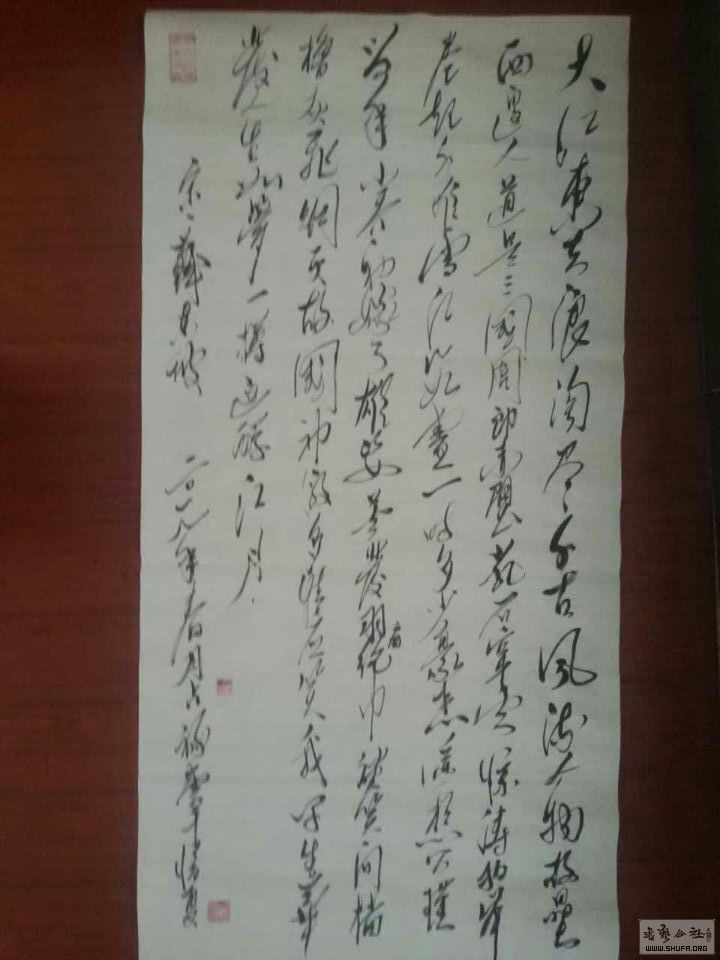 大江東去浪淘尽千古風流人物故壘
西邊人道是三國周郎赤壁乱石穿空惊涛拍岸
卷起千堆雪江山如畫一时多少豪杰遥想公瑾
当年小乔初嫁了雄姿英發羽扇纶巾談笑间檣
櫓灰飛烟灭故國神游多情应笑我早生華
發人生如夢一樽还酹江月
宋蘇东坡 二〇一九年春月
WWW.SHUFA.ORG